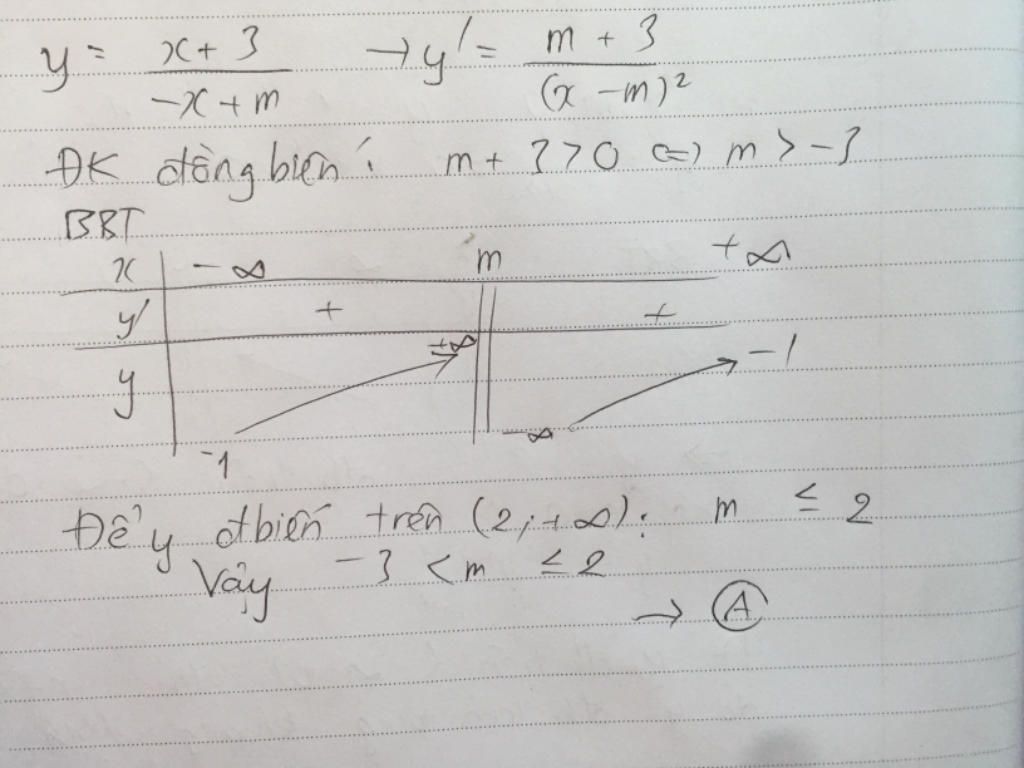 y = x + 3 / -x + m → y' = m + 3 / (x - m)²
ĐK đồng biến: m + 3 > 0 ⇔ m > -3
BBT
x -∞ m +∞
y' + +
+∞ -1
y
-1 -∞
Để y đbiến trên (2; +∞): m ≤ 2
Vậy -3 < m ≤ 2
→ A